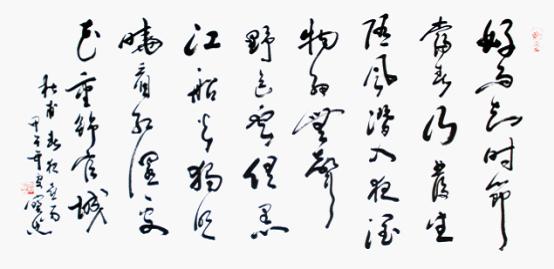 好雨知时節
當春乃發生
随风潜入夜润
物細無聲
野径云俱黑
江船火独明
曉看红湿处
花重錦官城
杜甫春夜喜雨
甲午年夏